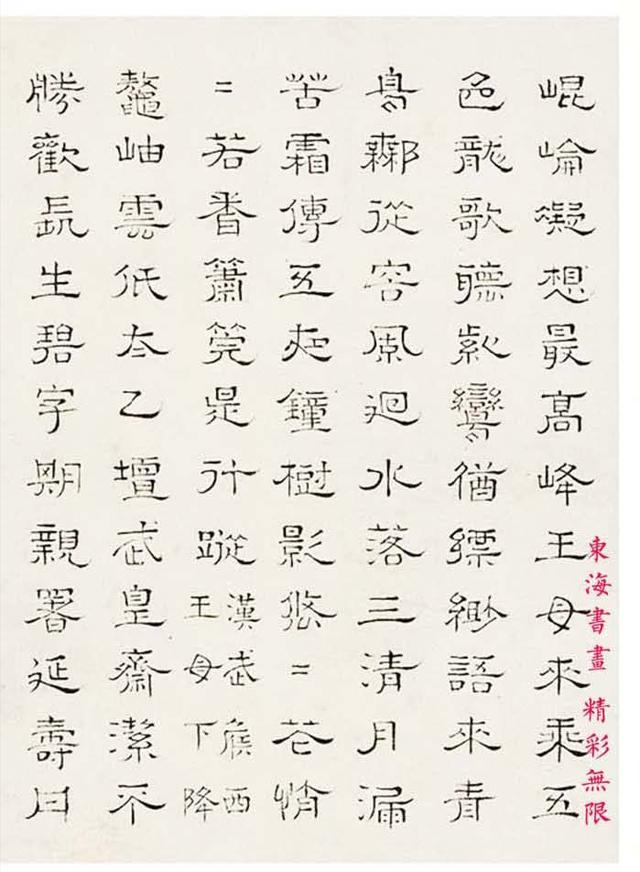 崐崘凝想最高峰王母來乘五
色龍歌聽紫鸞猶縹緲語來青
鳥鄦從容風迴水落三清月漏
苦霜傳五夜鐘樹影悠=花悄
=若香簫筦是行蹤
漢武候西
王母下降
鼇岫雲低太乙壇武皇齋潔不
勝歡長生碧字期親署延壽曰
東海書畫 精彩無限